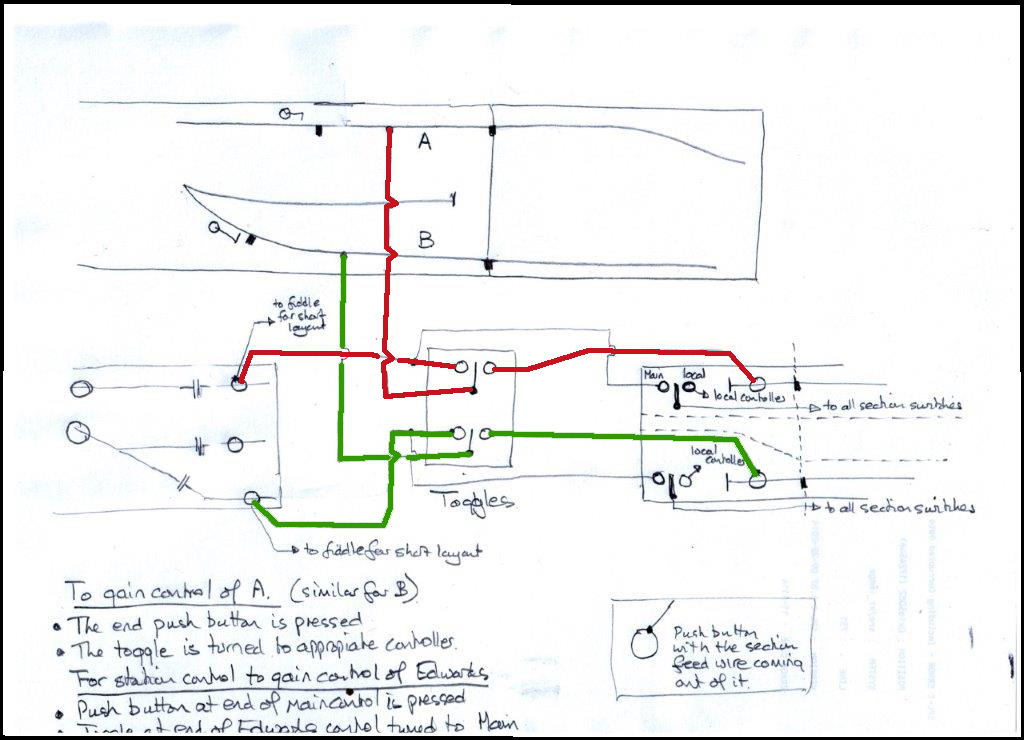 A
B
to fiddle
for short
layout
Main
local
local controller
to all section switches
local
controller
to all section switches
Toggles
to fiddle for short layout
To gain control of A. (similar for B)
• The end push button is pressed
• The toggle is turned to appropiate controller.
For station control to gain control of Edwards
• Push button at end of Main control is pressed
• Toggle at end of Edwards control turned to Main
Push button
with the section
feed wire coming
out of it.